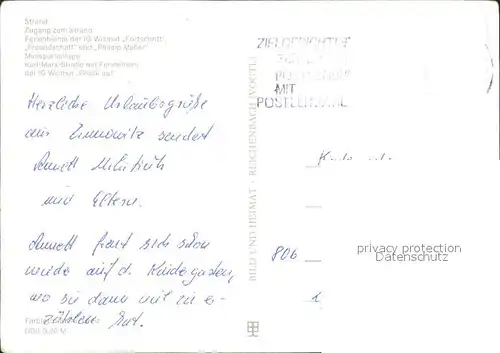 Strand
Zugang zum Strand
Ferienheime der IG Wismut „Fortschritt“,
„Freundschaft“ und „Philipp Müller“
Karl-Marx-Straße mit Ferienheim
der IG Wismut „Glück auf“
MIT
POSTLEITZAHL
Herzliche Urlaubsgrüße
aus Zinnowitz sendet
Annett
und Eltern.
Annett freut sich schon
wieder auf d. Kindergarten,
wo sie dann viel zu er-
zählen hat.
BILD UND HEIMAT · REICHENBACH (VOGTL)
806
privacy protection
Datenschutz